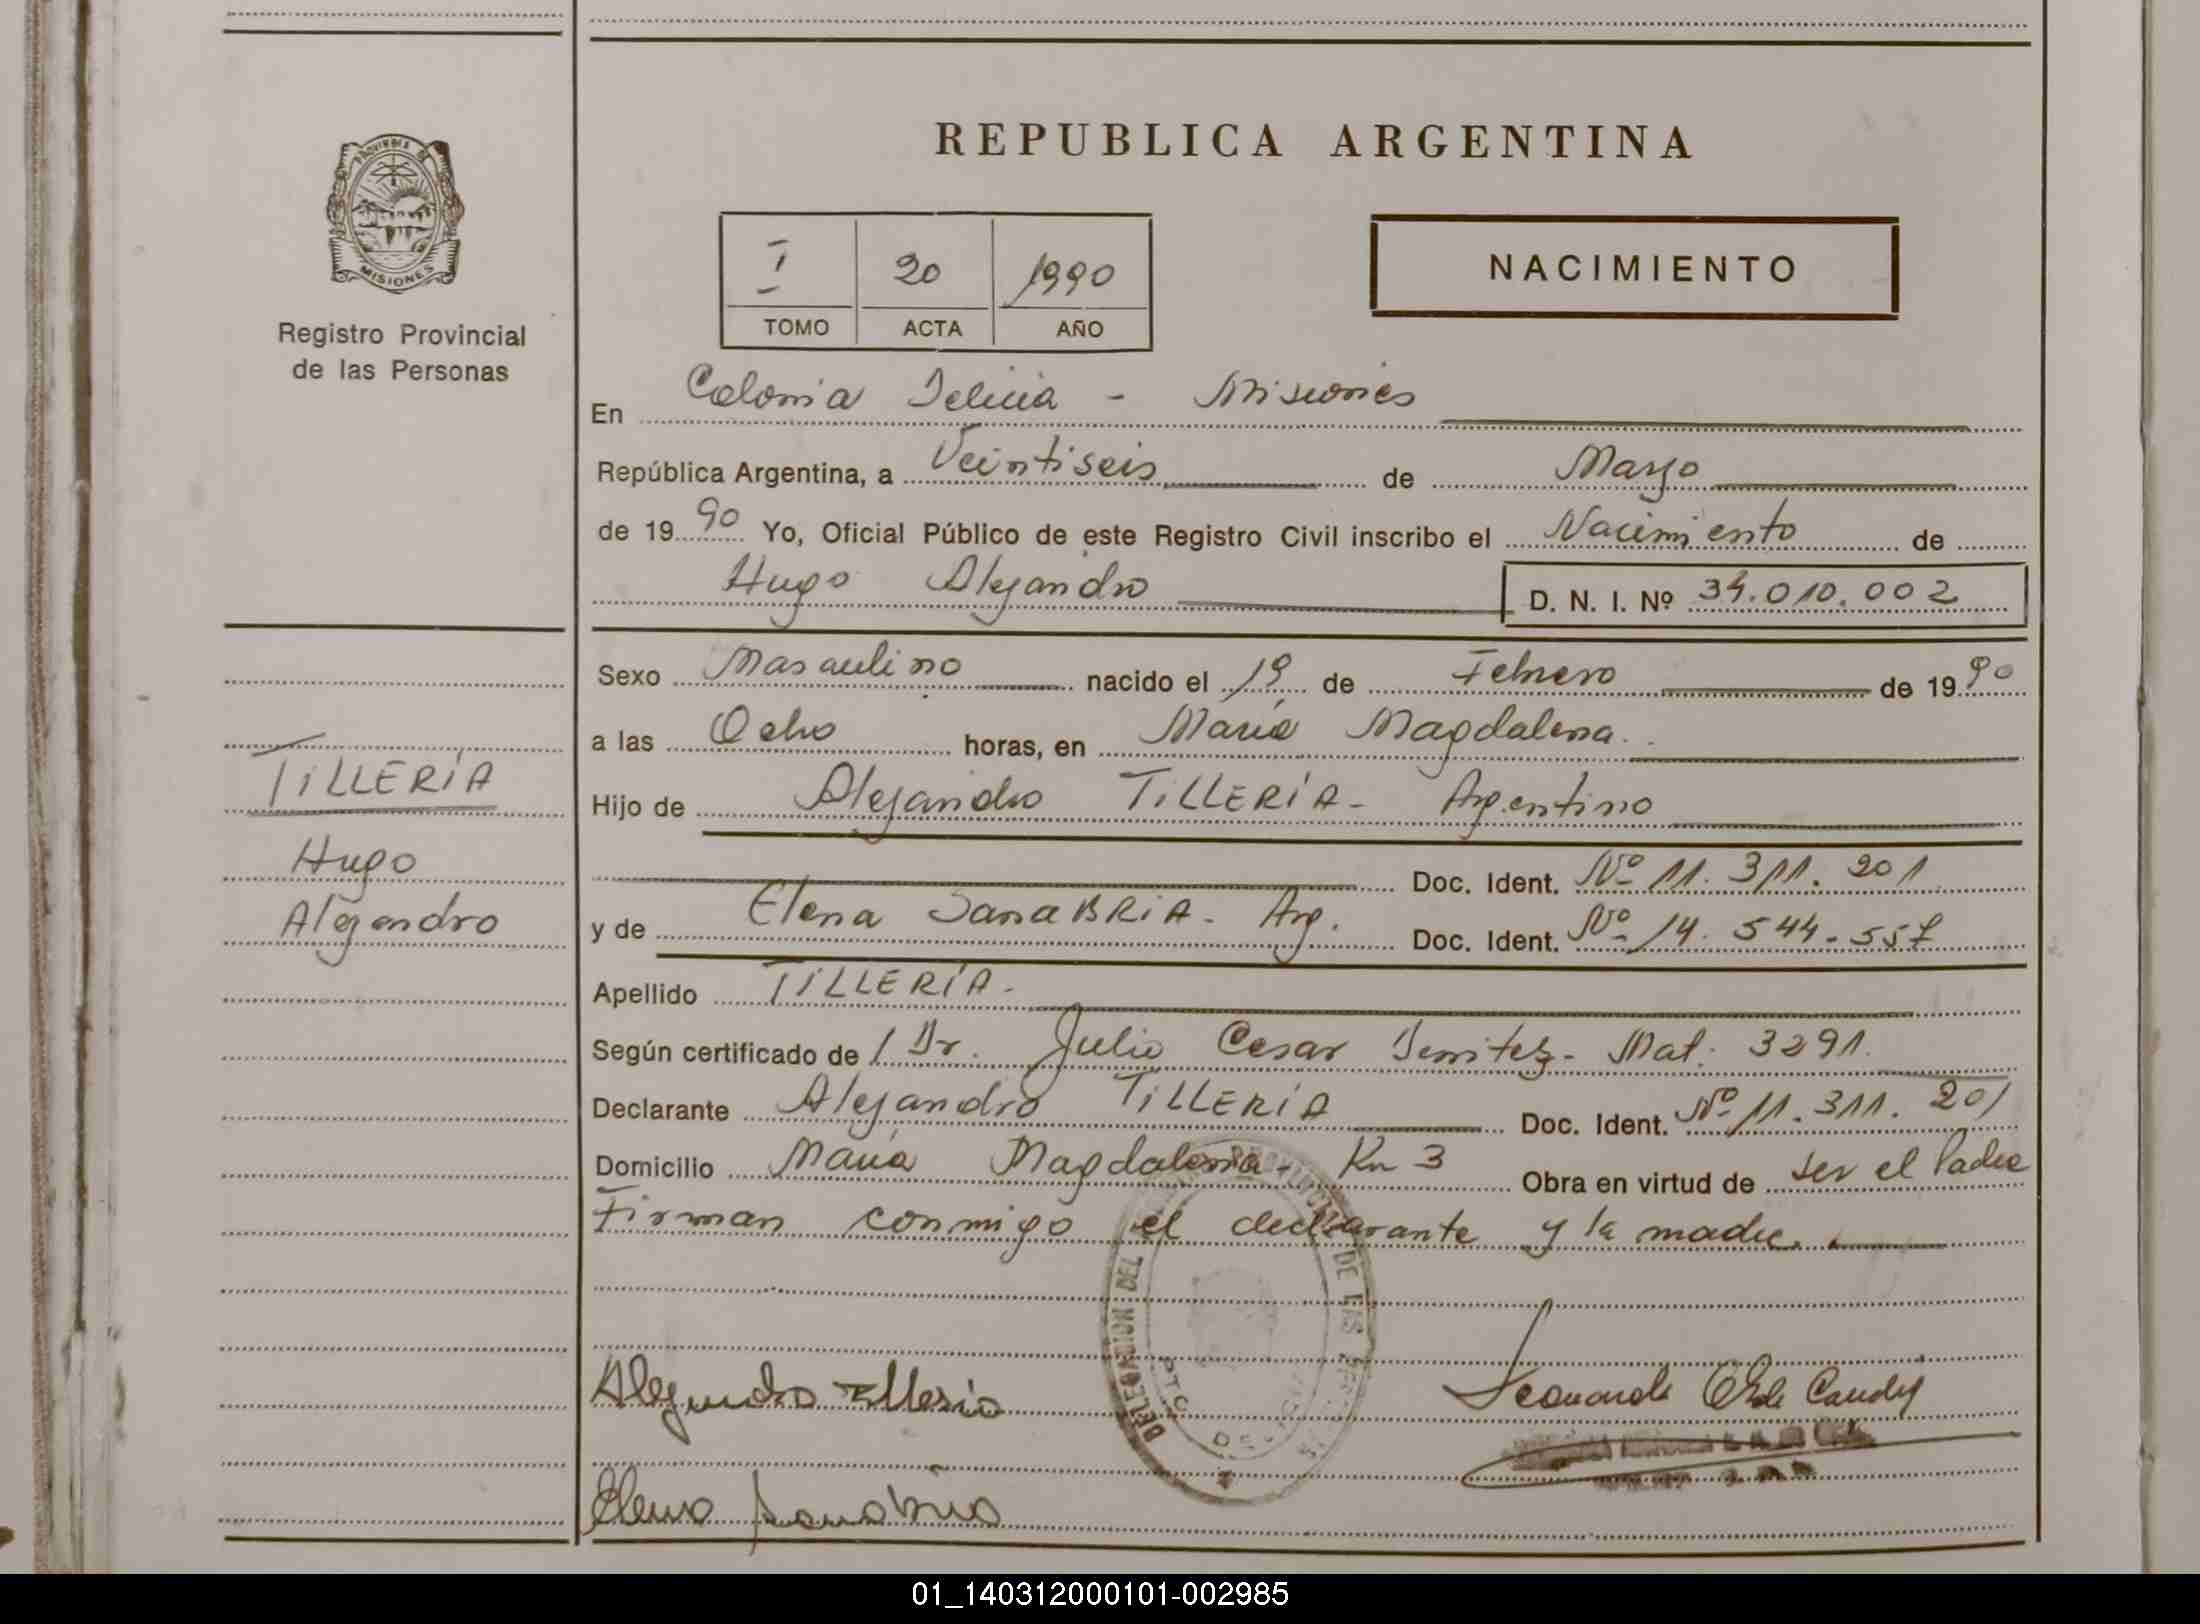 REPUBLICA ARGENTINA
PROVINCIA DE
MISIONES
Registro Provincial
de las Personas
I 20 1990
TOMO ACTA AÑO
NACIMIENTO
En Colonia Delicia - Misiones
República Argentina, a Veintiseis de Marzo
de 1990 Yo, Oficial Público de este Registro Civil inscribo el Nacimiento de
Hugo Alejandro D. N. I. Nº 34.010.002
Sexo Masculino nacido el 19 de Febrero de 1990
a las Ocho horas, en María Magdalena.
TILLERÍA
Hugo
Alejandro
Hijo de Alejandro TILLERÍA - Argentino
Doc. Ident. Nº 11.311.201
y de Elena SANABRIA - Arg. Doc. Ident. Nº 14.544.557
Apellido TILLERÍA -
Según certificado de / Dr. Julio Cesar Benitez - Mat. 3291.
Declarante Alejandro TILLERÍA Doc. Ident. Nº 11.311.201
Domicilio María Magdalena - Km 3 Obra en virtud de ser el Padre
Firman conmigo el declarante y la madre.
DELEGACION DEL DE LAS
Alejandro Tilleria
Elena Sanabria
01_140312000101-002985